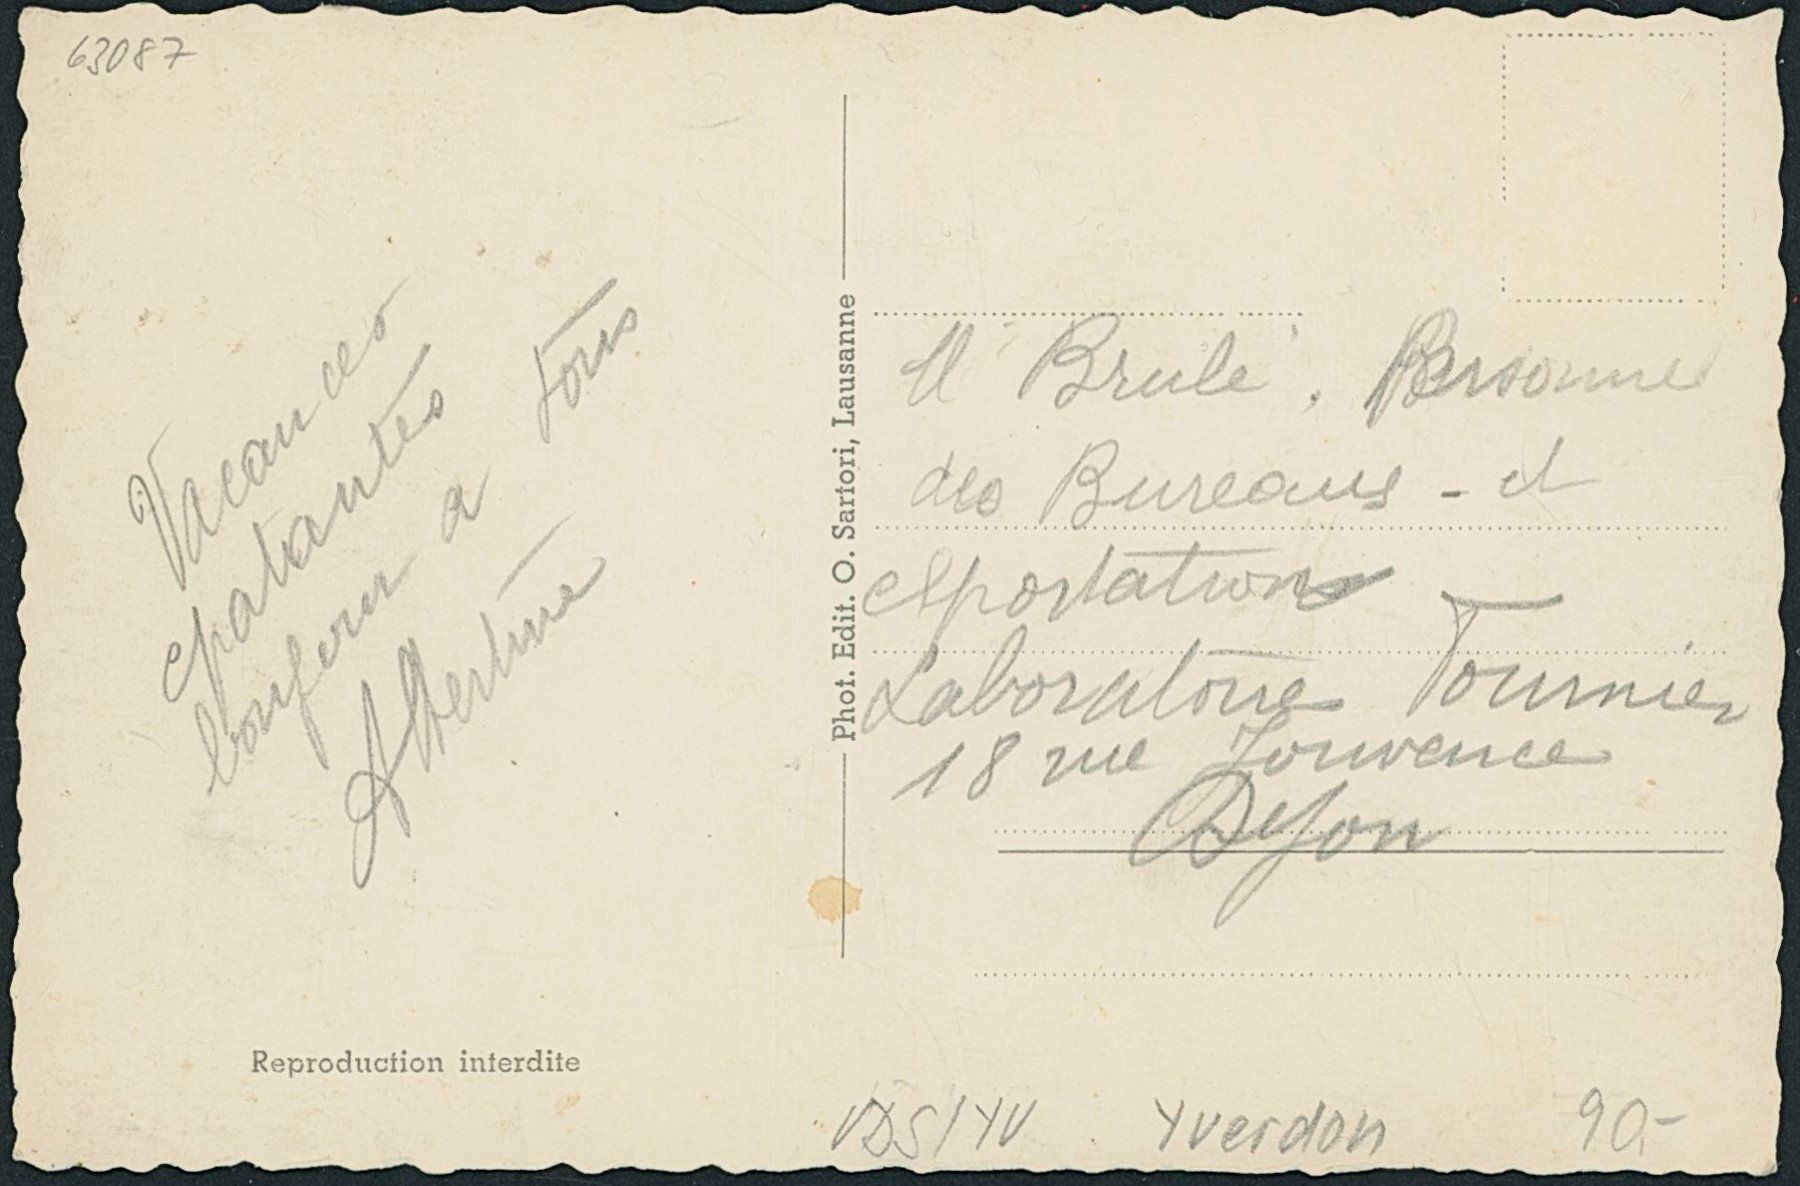 63087
Vacances
epatantes
bonjour a tous
Albertine
Phot. Edit. O. Sartori, Lausanne
Mr Brulé. Personnel
des Bureaux - et
exportation
Laboratoire Tournier
18 rue Jouvence
Dijon
Reproduction interdite
VDS/YV Yverdon 90.-